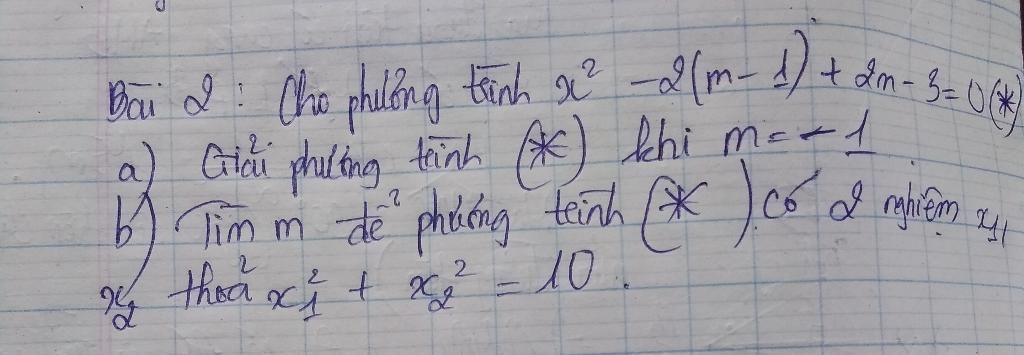 Bài 2 : Cho phương trình x² - 2(m - 1) + 2m - 3 = 0 (*)
a) Giải phương trình (*) khi m = - 1
b) Tìm m để phương trình (*) có 2 nghiệm x₁,
x₂ thoả x₁² + x₂² = 10.